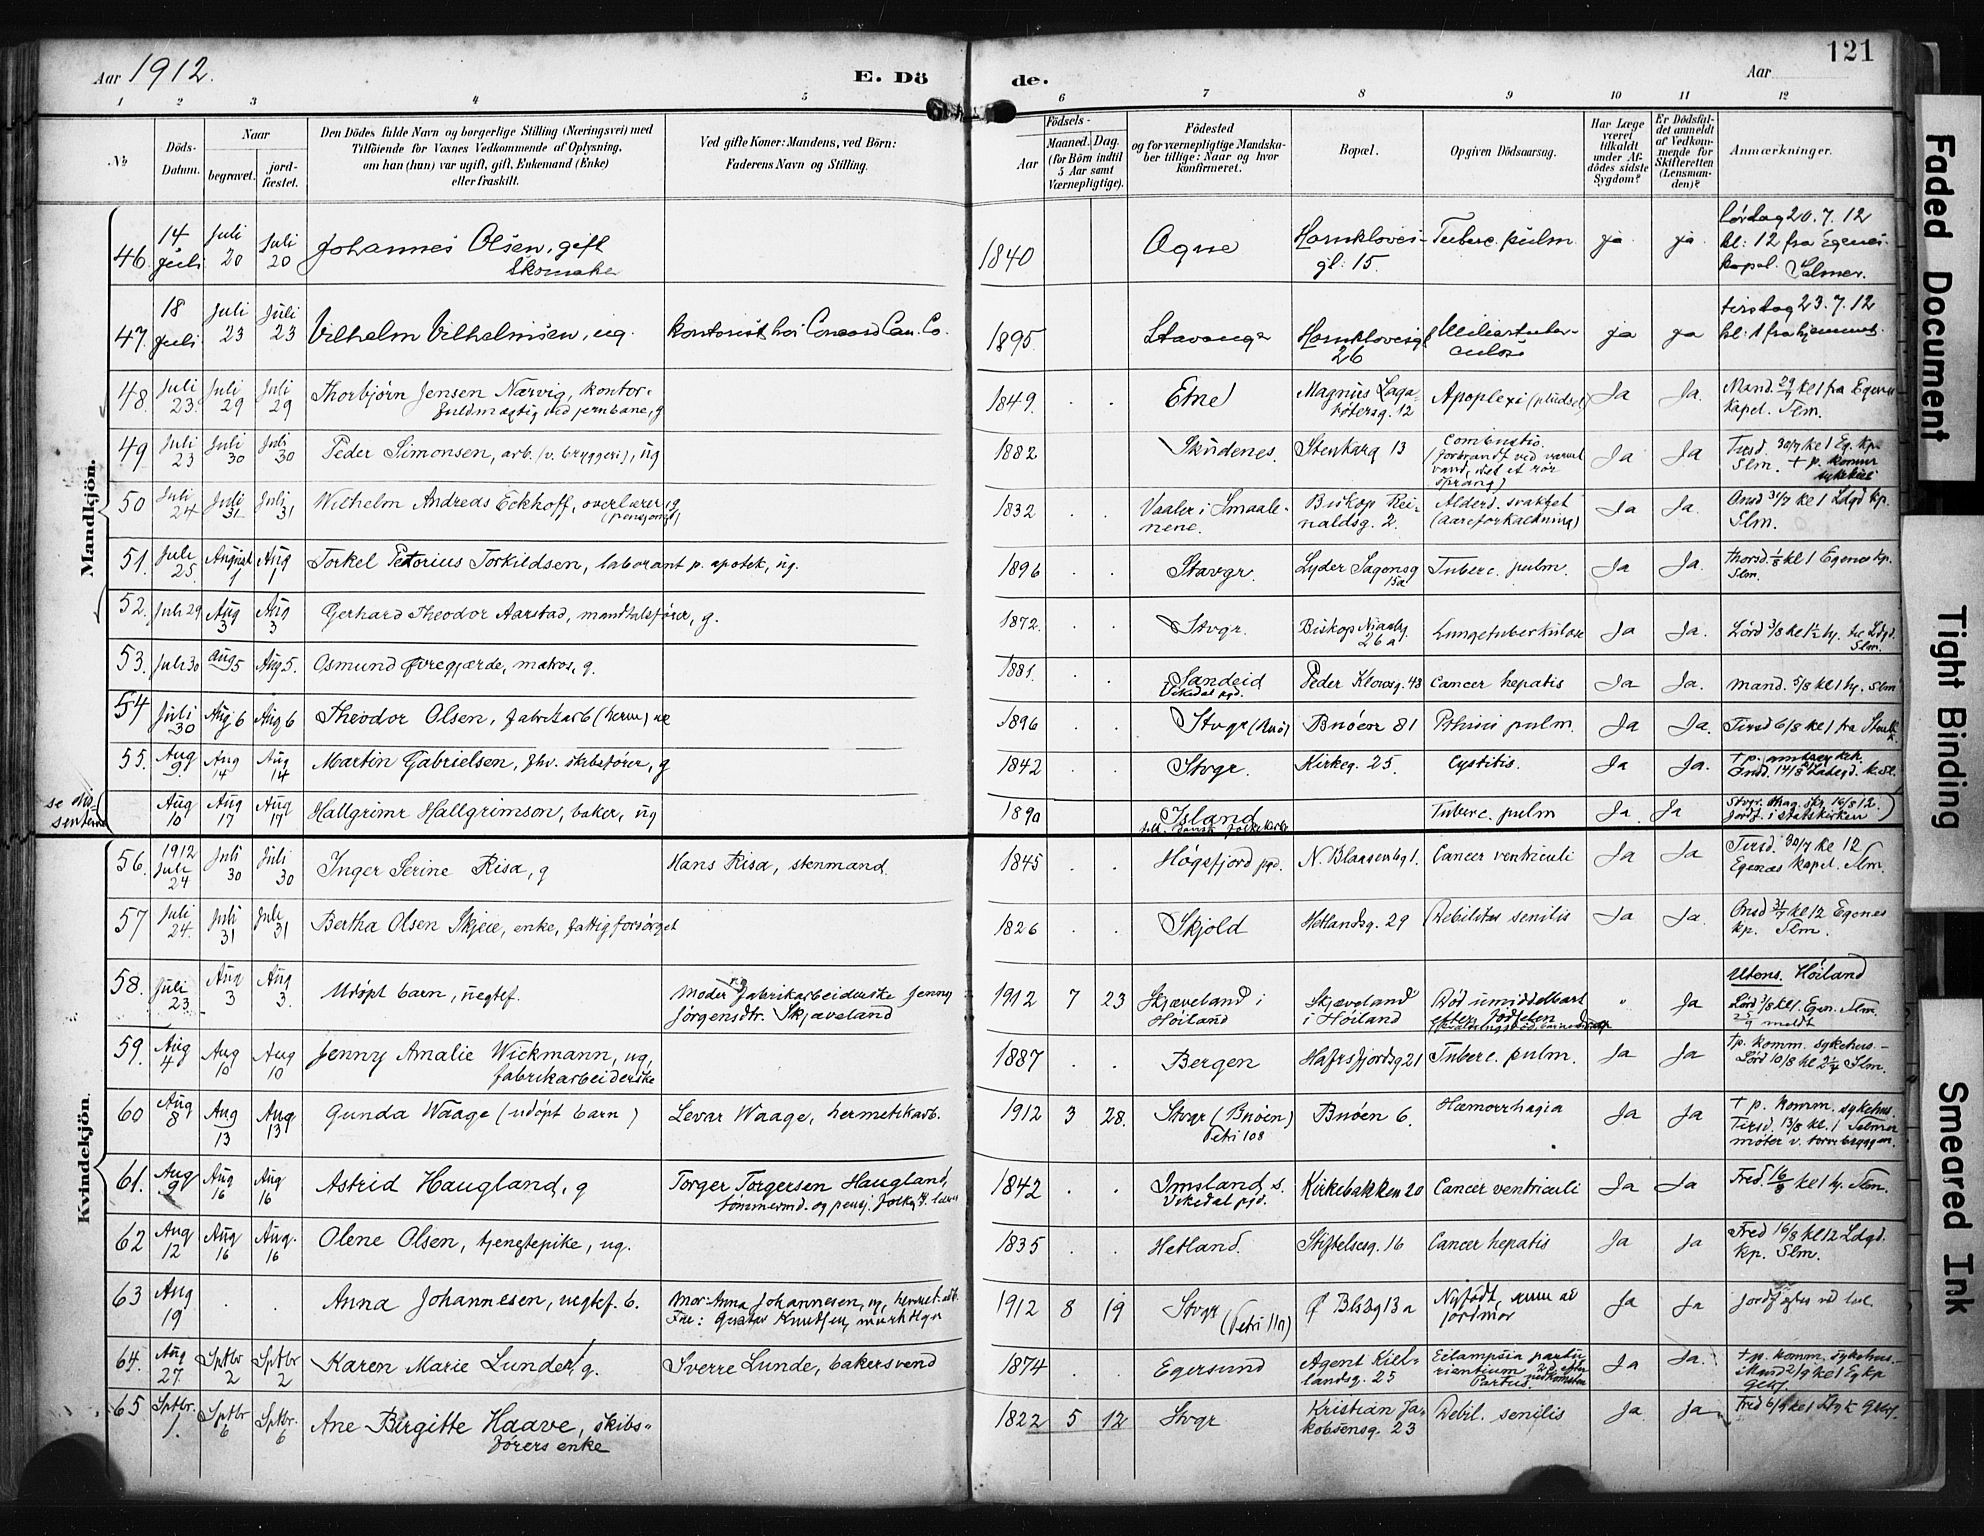 Aar 1912.
E. Dö
de.
Aar
121
1 2 3 4 5 6 7 8 9 10 11 12
№
Döds-
Datum.
Naar
begravet.
jord-
fæstet.
Den Dödes fulde Navn og borgerlige Stilling (Næringsvei) med
Tilföiende for Voxnes Vedkommende af Oplysning,
om han (hun) var ugift, gift, Enkemand (Enke)
eller fraskilt.
Ved gifte Koner: Mandens, ved Börn:
Faderens Navn og Stilling.
Födsels-
Aar
Maaned. Dag.
(for Börn indtil
5 Aar samt
Værnepligtige).
Födested
og for værnepligtige Mandska-
ber tillige: Naar og hvor
konfirmeret.
Bopæl.
Opgiven Dödsaarsag.
Har Læge
været
tilkaldt
under Af-
dödes sidste
Sygdom?
Er Dödsfal-
det anmeldt
af Vedkom-
mende for
Skifteretten
(Lensman-
den)?
Anmærkninger.
Mandkjön.
46. 14 Juli Juli 20 Juli 20 Johannes Olsen, gift Skomaker 1840 Ogne gt. 15. Tuberc. pulm. ja ja Lördag 20.7.12 kl: 12 fra Egenes kapel. Selmer.
47. 18 Juli Juli 23 Juli 23 Vilhelm Vilhelmsen, ug. kontorist hos Concord Can. Co. 1895 26 Miliærtuber-culose ja ja tirsdag 23.7.12 kl: 1 fra hjemmet.
48. Juli 23. Juli 29 Juli 29 Thorbjørn Jensen Nærvig, kontor-fuldmægtig ved jernbane, g 1849. Etne Magnus Laga-bøtersg. 12 Apoplexi (pludsel) Ja Ja. Mand. 29/7 kl 1 fra Egenes kapel. Slm.
49 Juli 23 Juli 30 Juli 30 Peder Simonsen, arb. (v. bryggeri), ug 1882 Skudenes. Stenkarg 13 Combustio. (forbrændt ved varmt vand, idet et rør sprang) Ja Ja Tirsd. 30/7 kl 1 Eg. kp. Slm. + p. komm. sykehus
50 Juli 24 Juli 31 Juli 31 Wilhelm Andreas Eckhoff, overlærer, g (pensjoneret) 1832 Vaaler i Smaale-nene. Biskop Rei-naldsg. 2. Alderd. svakhet (aareforkalkning) Ja Ja. Onsd 31/7 kl 1 Ldgd kp. Slm.
51. Juli 25. August 1 Aug 1 Torkel Petorius Torkildsen, laborant p. apotek, ug. 1896 Stavgr. Lyder Sagensg 15a Tuberc. pulm. Ja Ja. Thorsd. 1/8 kl 1 Egenes kp. Slm.
52. Juli 29 Aug 3 Aug 3 Gerhard Theodor Aarstad, mandtalsfører, g. 1872. Stvgr. 26a Lungetuberkulose Ja Ja. Lörd 3/8 Slm.
53. Juli 30 Aug 5 Aug 5. Osmund Øvregjærde, matros, g. 1881. Sandeid Vikedal pgd. Peder Klowsg. 43 Cancer hepatis Ja Ja. Mand. 5/8 kl 1 hj. Slm
54 Juli 30 Aug 6 Aug 6 Theodor Olsen, fabrikarb (herm) 1896 Stvgr (Buö) Buöen 81 Phtisis pulm. Ja Ja. Tirsd 6/8 kl 1 fra
55. Aug 9 Aug 14 Aug 14 Martin Gabrielsen, fhv. skibsfører, g 1842 Stvgr. Kirkeg. 25. Cystitis. Ja Ja. Onsd. 14/8
se dis-sentere Aug 10 Aug 17 Aug 17 Hallgrimr Hallgrimson, baker, ug 1890 Island Tuberc. pulm Ja Ja 16/8 12. Jordf. i statskirken
Kvindekjön.
56. 1912 Juli 24 Juli 30 Juli 30 Inger Serine Risa, g Hans Risa, stenmand. 1845 Høgsfjord pgd. N. Blaasenbg 1. Cancer ventriculi Ja Ja Tirsd. 30/7 kl 12 Egenæs kapel. Slm.
57 Juli 24. Juli 31 Juli 31 Bertha Olsen Skjeie, enke, fattigforsørget 1826 Skjold Hetlandsg. 29 Debilitas senilis Ja Ja. Onsd 31/7 kl 12 Egenes kp. Slm.
58. Juli 23. Aug 3 Aug 3. Udöpt barn, uegtef. Moder: fabrikarbeiderske Jenny Jørgensdtr. Skjæveland 1912 7 23 Skjæveland i Höiland Skjæveland i Höiland Död umiddelbart efter fødselen " Ja Utens. Höiland Lörd 3/8 kl 1. Egen. Slm. 25/9 meldt
59. Aug 4 Aug 10 Aug 10 Jenny Amalie Wickmann, ug. fabrikarbeiderske 1887 Bergen Hafrsfjordsg 21 Tuberc. pulm. Ja Ja + p. komm. sykehus. Lörd 10/8 kl 2 1/4 Slm.
60 Aug 8 Aug 13 Aug 13 Gunda Waage (udöpt barn) Levar Waage, hermetikarb. 1912 3 28. Stvgr (Buöen) Petri 108 Buöen 6. Hæmorrhagia Ja Ja + p. komm. sykehus. Tirsd. 13/8 kl. 1 Selmer møter v. torvbryggen.
61. Aug 9 Aug 16 Aug 16 Astrid Haugland, g Torger Torgersen Haugland, tömmermd. og pensj. 1842 Imsland s. Vikedal pgd. Kirkebakken 20 Cancer ventriculi Ja Ja Fred. 16/8 kl 1 hj. Slm.
62 Aug 12 Aug 16 Aug. 16 Olene Olsen, tjenestepike, ug. 1835 Hetland. Stiftelsesg. 16 Cancer hepatis Ja Ja Fred 16/8 kl 12 Ldgd. kp. Slm.
63 Aug 19 Anna Johannesen, uegtef. b. Mor: Anna Johannesen, ug, hermet. arb. Far: Gustav Knutsen, 1912 8 19 Stvgr (Petri 110) Ø Blsbg 13a Nyfödt, jordmor Ja Ja
64. Aug 27. Sptbr 2 Sptbr. 2 Karen Marie Lunde, g. Sverre Lunde, bakersvend 1874 Egersund Agent Kiel-landsg. 25 Eclampsia partu-rientium Partus. Ja Ja. + p. komm. sykehus. Mand 2/9 kl 1 Eg kp
65 Sptbr. 1. Sptbr 6 Sptbr. 6 Ane Birgitte Haave, skibs-førers enke 1822 5 12 Stvgr Kristian Ja-kobsensg. 23 Debil. senilis Ja Ja Fred 6/9 kl 1
Faded Document
Tight Binding
Smeared Ink